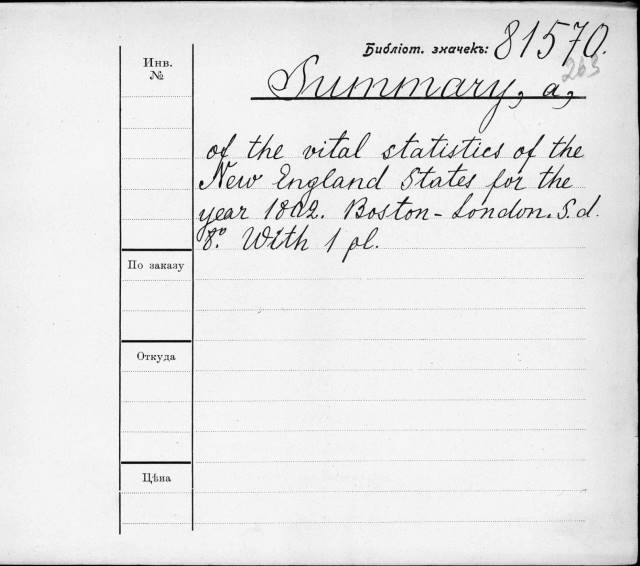 Бібліот. значекъ: 81570.
263
Инв.
№
Summary, a,
of the vital statistics of the
New England States for the
year 1892. Boston - London. S. d.
8º. With 1 pl.
По заказу
Откуда
Цѣна